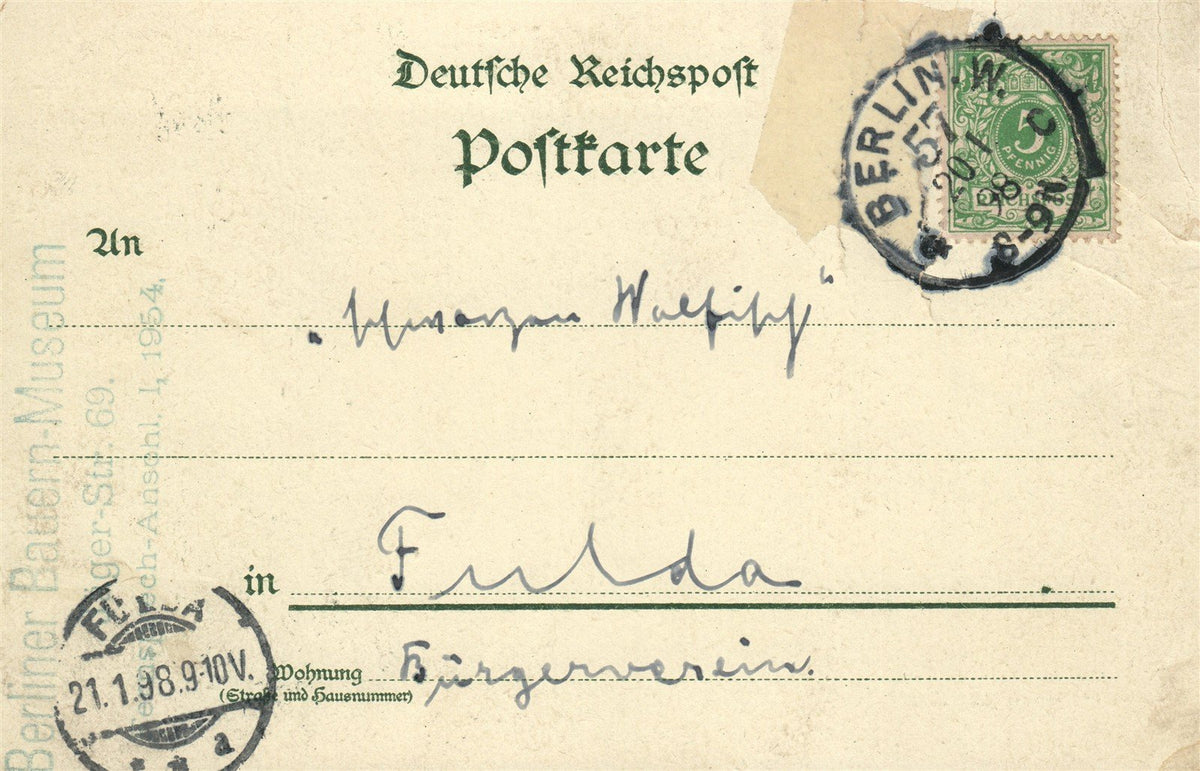 Deutsche Reichspost
Postkarte
BERLIN. W.
57
20 1
98
8-9N.
C
5
PFENNIG
REICHSPOST
An
„schwarzen Walfisch“
in Fulda
Wohnung Bürgerverein.
(Straße und Hausnummer)
Berliner Bauern-Museum
ger-Str. 69.
ech-Anschl. I, 1954.
FULDA
21.1.98.9-10V.
* * a